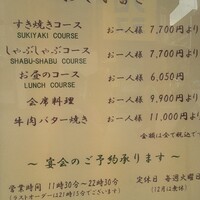 すき焼きコース お一人様 7,700円より
SUKIYAKI COURSE
しゃぶしゃぶコース お一人様 7,700円より
SHABU-SHABU COURSE
お昼のコース お一人様 6,050円
LUNCH COURSE
会席料理 お一人様 9,900円より
牛肉バター焼き お一人様 11,000円より
金額は全て税込で
～ 宴会のご予約承ります ～
営業時間 11時30分～22時30分 定休日 毎週火曜
(ラストオーダーは21時15分でございます) (12月は無休)